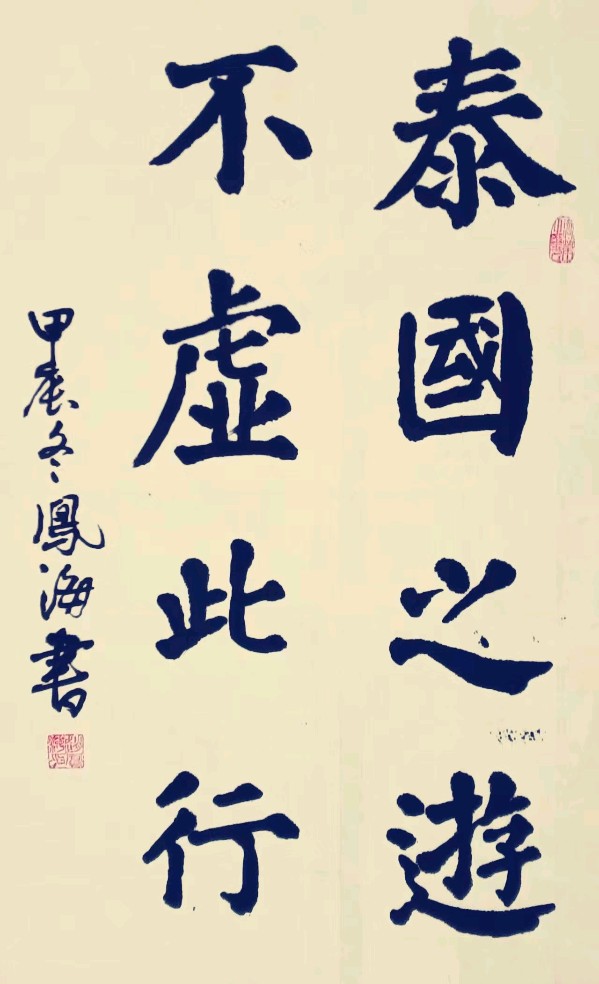 泰國之遊
不虛此行
甲辰冬鳳海書